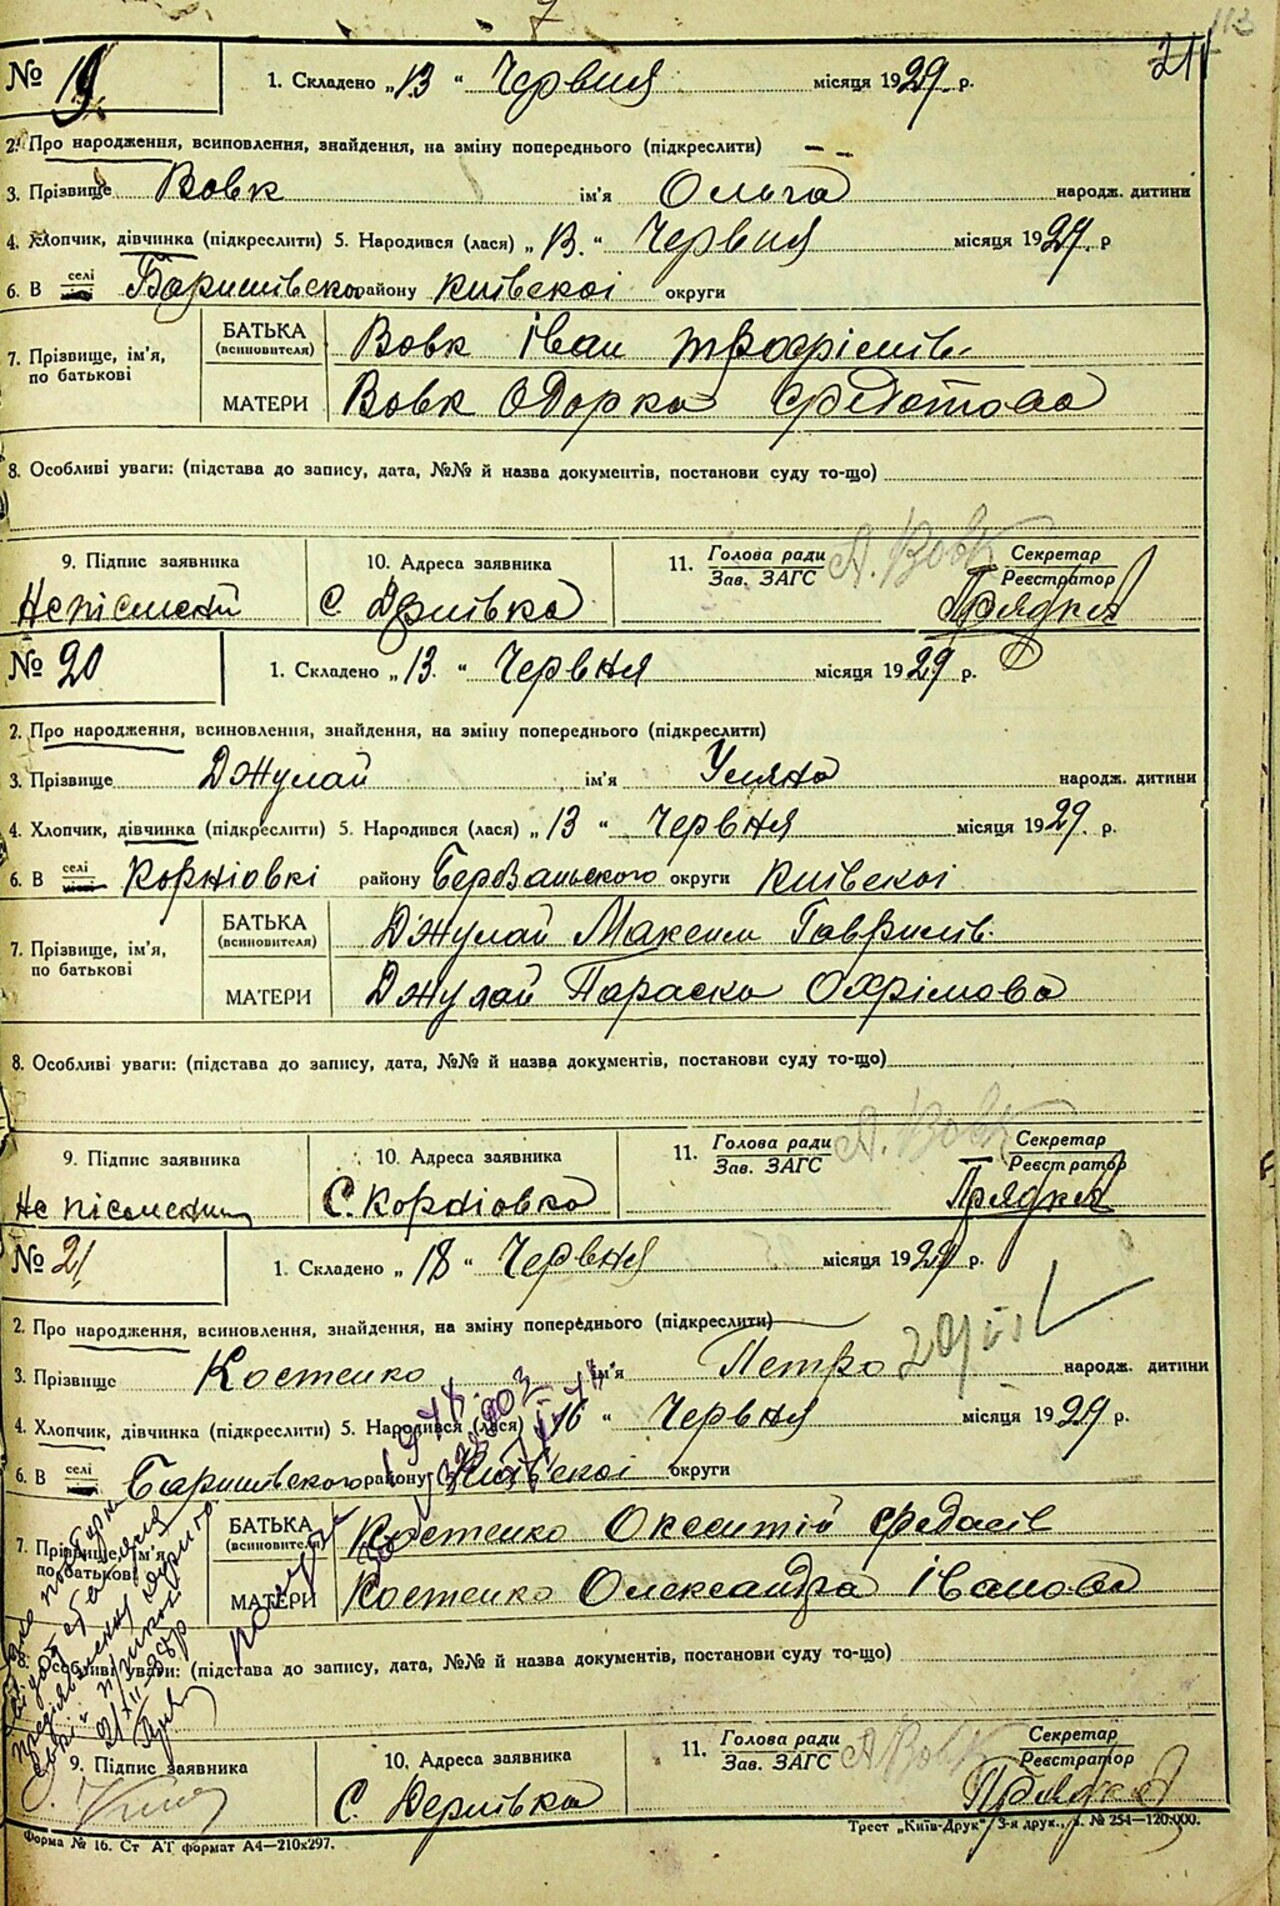 7
113
211
№ 19. 1. Складено „13 “ Червня місяця 1929. р.
2. Про народження, всиновлення, знайдення, на зміну попереднього (підкреслити)
3. Прізвище Вовк ім'я Ольга народж. дитини
4. Хлопчик, дівчинка (підкреслити) 5. Народився (лася) „ 13. “ Червня місяця 1929. р
6. В селі Баришівсько району Київскоі округи
7. Прізвище, ім'я, по батькові
БАТЬКА (всиновителя) Вовк Іван Трофімів.
МАТЕРИ Вовк Одорка Федотова
8. Особливі уваги: (підстава до запису, дата, №№ й назва документів, постанови суду то-що)
9. Підпис заявника 10. Адреса заявника 11. Голова ради Зав. ЗАГС А. Вовк Секретар Реєстратор
Непісмений С. Дернівка Прядка
№ 20 1. Складено „ 13. “ Червня місяця 1929 р.
2. Про народження, всиновлення, знайдення, на зміну попереднього (підкреслити)
3. Прізвище Джулай ім'я Уляна народж. дитини
4. Хлопчик, дівчинка (підкреслити) 5. Народився (лася) „ 13 “ Червня місяця 1929. р.
6. В селі Корніовкі району Березаньского округи Київскоі
7. Прізвище, ім'я, по батькові
БАТЬКА (всиновителя) Джулай Максим Гаврилів.
МАТЕРИ Джулай Параска Охрімова
8. Особливі уваги: (підстава до запису, дата, №№ й назва документів, постанови суду то-що)
9. Підпис заявника 10. Адреса заявника 11. Голова ради Зав. ЗАГС А. Вовк Секретар Реєстратор
Не пісмений С. Корніовка Прядка
№ 21 1. Складено „ 18 “ Червня місяця 1929 р.
2. Про народження, всиновлення, знайдення, на зміну попереднього (підкреслити)
3. Прізвище Костенко ім'я Петро народж. дитини
4. Хлопчик, дівчинка (підкреслити) 5. Народився (лася) „ 16 “ Червня місяця 1929 р.
6. В селі Баришівского району Київскоі округи
7. Прізвище, ім'я, по батькові
БАТЬКА (всиновителя) Костенко Оксентій Федасів
МАТЕРИ Костенко Олександра Іванова
8. Особливі уваги: (підстава до запису, дата, №№ й назва документів, постанови суду то-що)
9. Підпис заявника 10. Адреса заявника 11. Голова ради Зав. ЗАГС А Вовк Секретар Реєстратор
С. Дернівка Прядка
Форма № 16. Ст АТ формат А4—210х297. Трест „Київ-Друк“, 3-я друк., З. № 254—120.000.